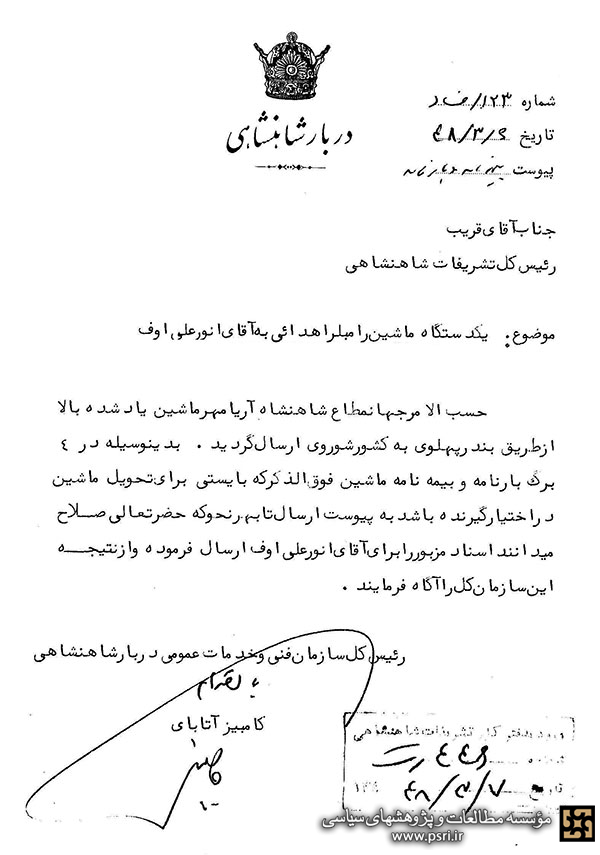 دربار شاهنشاهی
شماره ۱۲۳/ف د
تاریخ ۴۸/۳/۶
پیوست
جناب آقای قریب
رئیس کل تشریفات شاهنشاهی
موضوع : یکدستگاه ماشین رامبلر اهدائی به آقای انور علی اوف
حسب الامر جهانمطاع شاهنشاه آریامهر ماشین یاد شده بالا
از طریق بندر پهلوی به کشور شوروی ارسال گردید . بدینوسیله در ٤
برگ بارنامه و بیمه نامه ماشین فوق الذکر که بایستی برای تحویل ماشین
در اختیار گیرنده باشد به پیوست ارسال تا بهر نحو که حضرتعالی صلاح
میدانند اسناد مزبور را برای آقای انور علی اوف ارسال فرموده و از نتیجه
این سازمان کل را آگاه فرمایند .
رئیس کل سازمان فنی و خدمات عمومی دربار شاهنشاهی
کامبیز آتابای
ورود بدفتر کل تشریفات شاهنشاهی
شماره
تاریخ ۴۸/۳/۷ ۱۳۴
مؤسسه مطالعات و پژوهشهای سیاسی
www.psri.ir